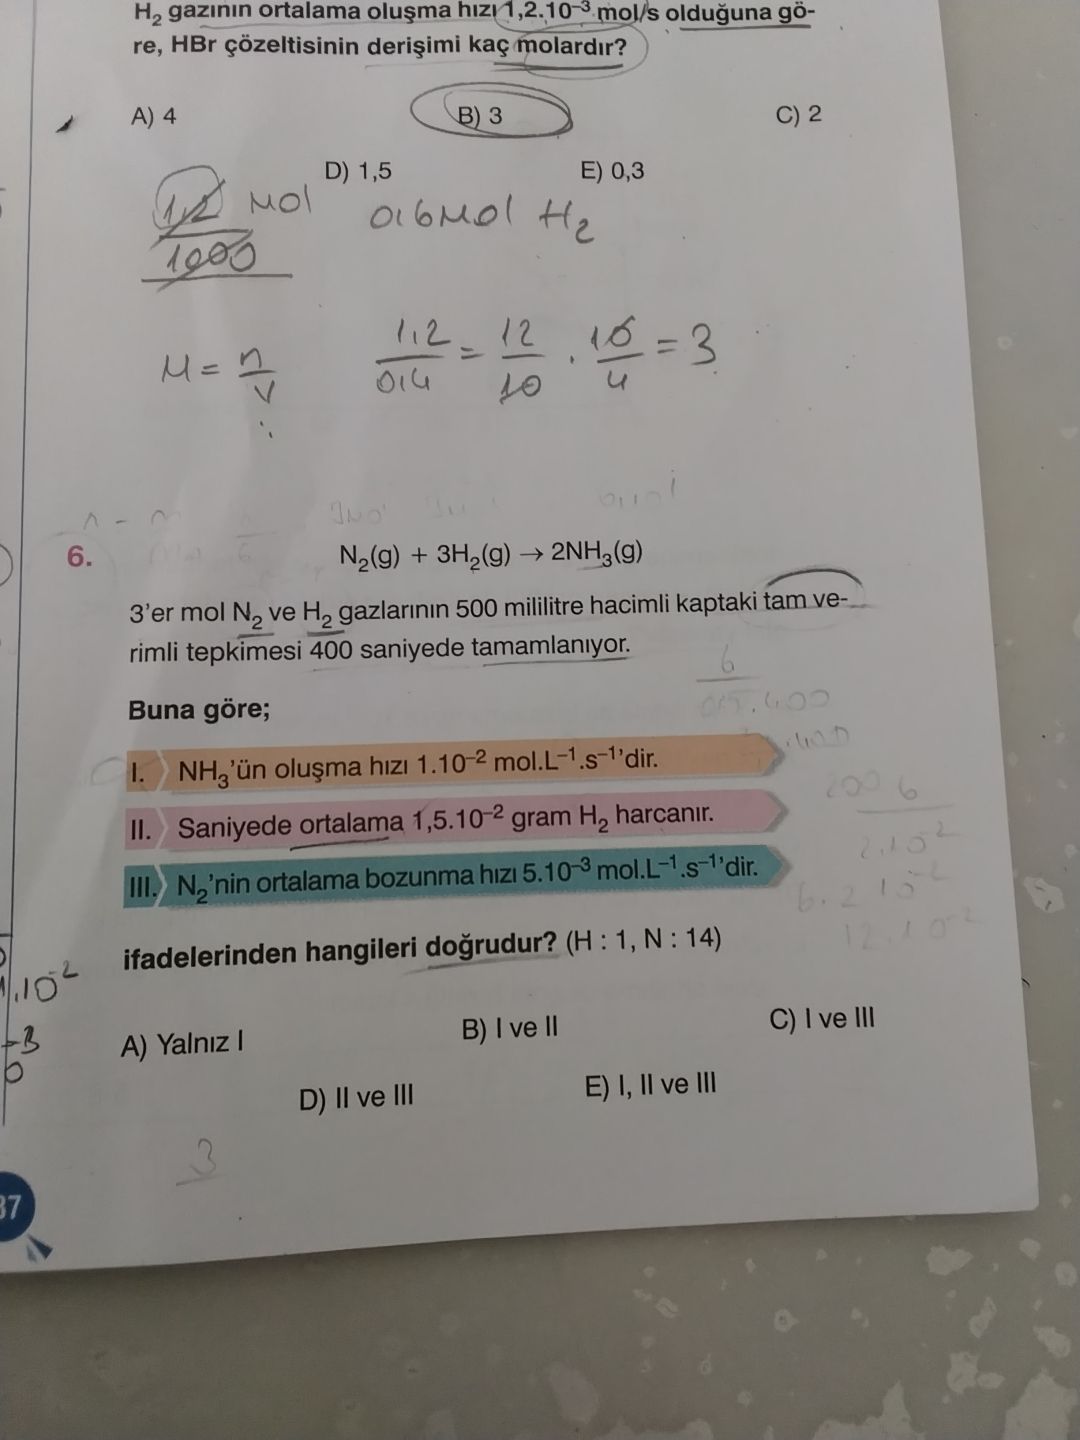 H₂ gazının ortalama oluşma hızı 1,2.10⁻³ mol/s olduğuna gö-
re, HBr çözeltisinin derişimi kaç molardır?
A) 4 B) 3 C) 2
D) 1,5 E) 0,3
1,2 mol 0,6 mol H₂
1000
M = n/v 1,2/0,4 = 12/10 . 10/4 = 3
6. N₂(g) + 3H₂(g) → 2NH₃(g)
3'er mol N₂ ve H₂ gazlarının 500 mililitre hacimli kaptaki tam ve-
rimli tepkimesi 400 saniyede tamamlanıyor.
6
0,5.400
Buna göre;
I. NH₃'ün oluşma hızı 1.10⁻² mol.L⁻¹.s⁻¹'dir.
200 6
II. Saniyede ortalama 1,5.10⁻² gram H₂ harcanır.
2.10⁻²
III. N₂'nin ortalama bozunma hızı 5.10⁻³ mol.L⁻¹.s⁻¹'dir.
6.2 10⁻²
12.10⁻²
ifadelerinden hangileri doğrudur? (H : 1, N : 14)
1.10⁻²
A) Yalnız I B) I ve II C) I ve III
D) II ve III E) I, II ve III
3
37